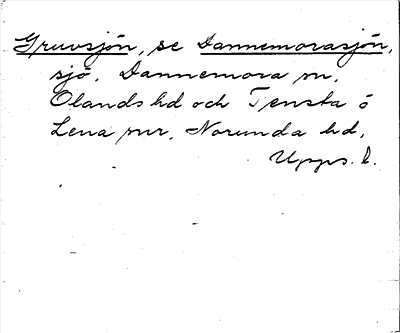 Gruvsjön, se Dannemorasjön,
sjö, Dannemora sn,
Olands hd och Tensta o
Lena snr, Norunda hd,
Upps. l.